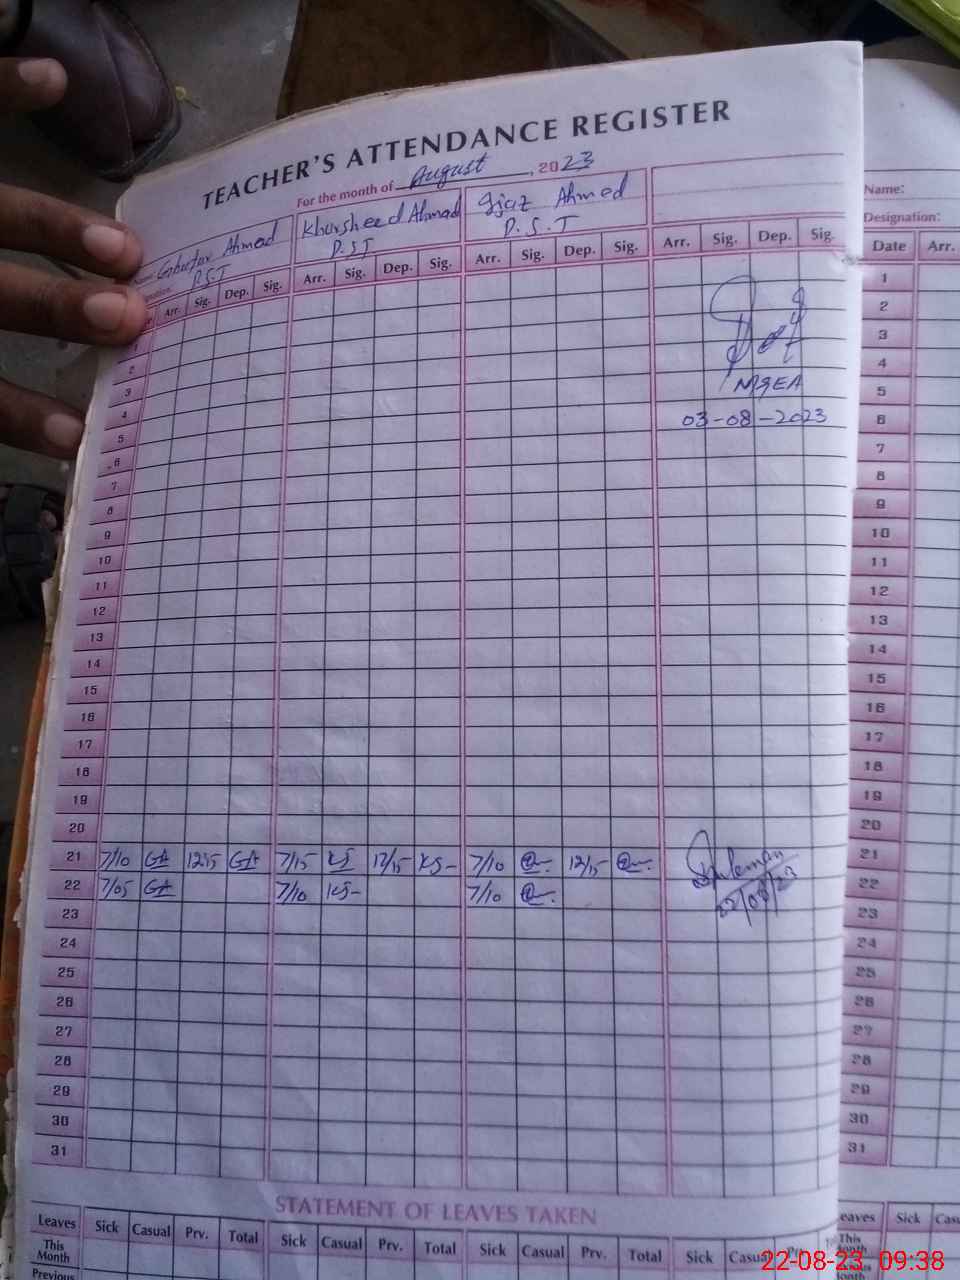 TEACHER'S ATTENDANCE REGISTER
For the month of August, 2023
Ahmad Khursheed Ahmad Ijaz Ahmed
P.S.T P.S.T P.S.T
Name:
Designation:
Arr. Sig. Dep. Sig. Arr. Sig. Dep. Sig. Arr. Sig. Dep. Sig. Arr. Sig. Dep. Sig. Date Arr.
1 1
2 2
3 3
4 4
5 5
6 6
7 7
8 8
9 9
10 10
11 11
12 12
13 13
14 14
15 15
16 16
17 17
18 18
19 19
20 20
21 7/10 GA 12:15 GA 7/15 KS 12/15 KS- 7/10 12/15 Suleman 21
22 7/05 GA 7/10 KS- 7/10 22/08/23 22
23 23
24 24
25 25
26 26
27 27
28 28
29 29
30 30
31 31
M&EA
03-08-2023
STATEMENT OF LEAVES TAKEN
Leaves Sick Casual Prv. Total Sick Casual Prv. Total Sick Casual Prv. Total Sick Casual Sick
This Month This
Previous
22-08-23 09:38